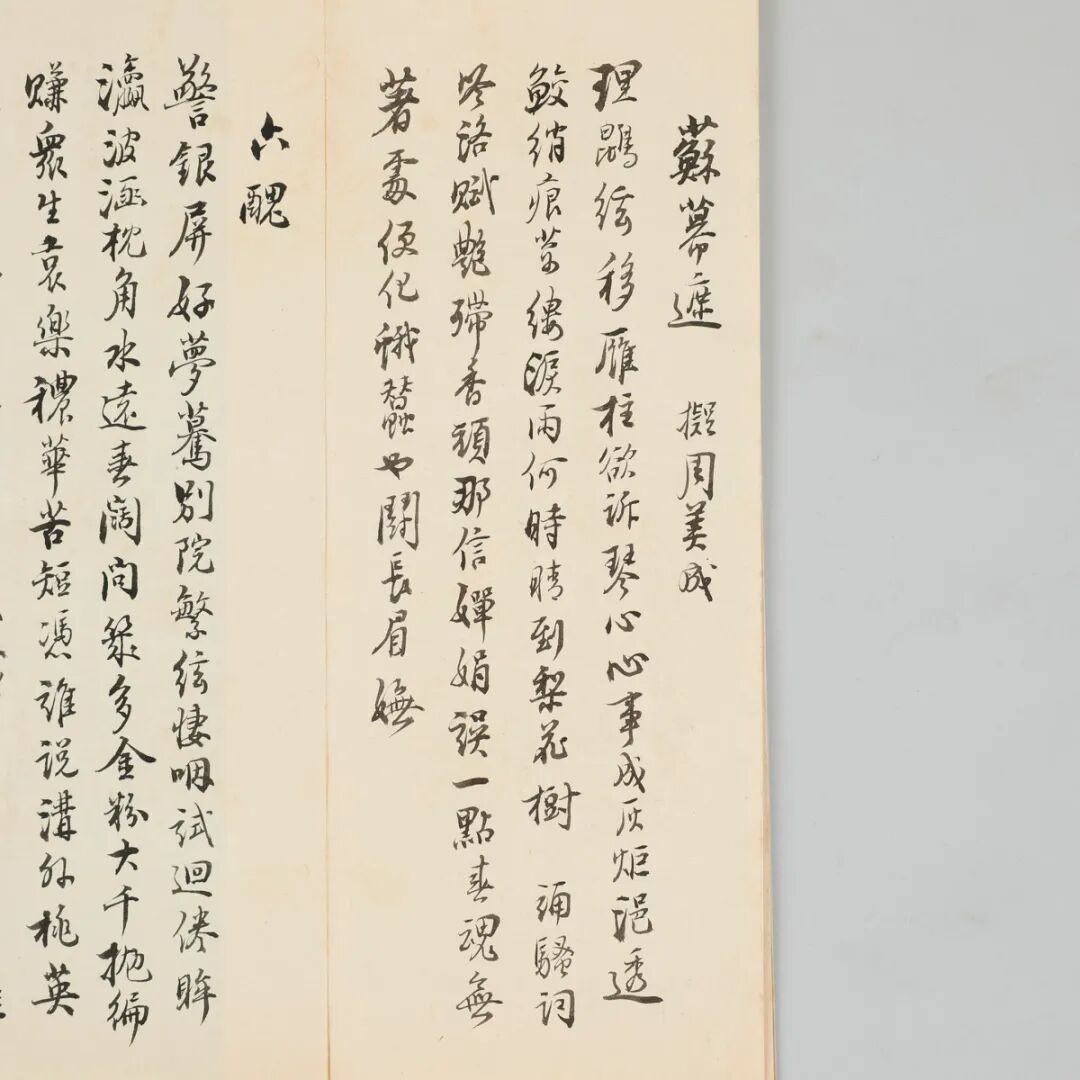 蘇幕遮 擬周美成
理鵾絃移雁柱欲訴琴心心事成灰炬浥透
鮫綃痕縷淚雨何時晴到梨花樹 誦騷詞
洛賦艷殢香頑那信嬋娟誤一點春魂無
著處便化蛾蠶也鬭長眉嫵
六醜
警銀屏好夢驀別院繁絃悽咽試迴倦眸
瀛波涵枕角水遠春闊問幾多金粉大千拋徧
賺眾生哀樂穠華苦短憑誰說溝外桃英